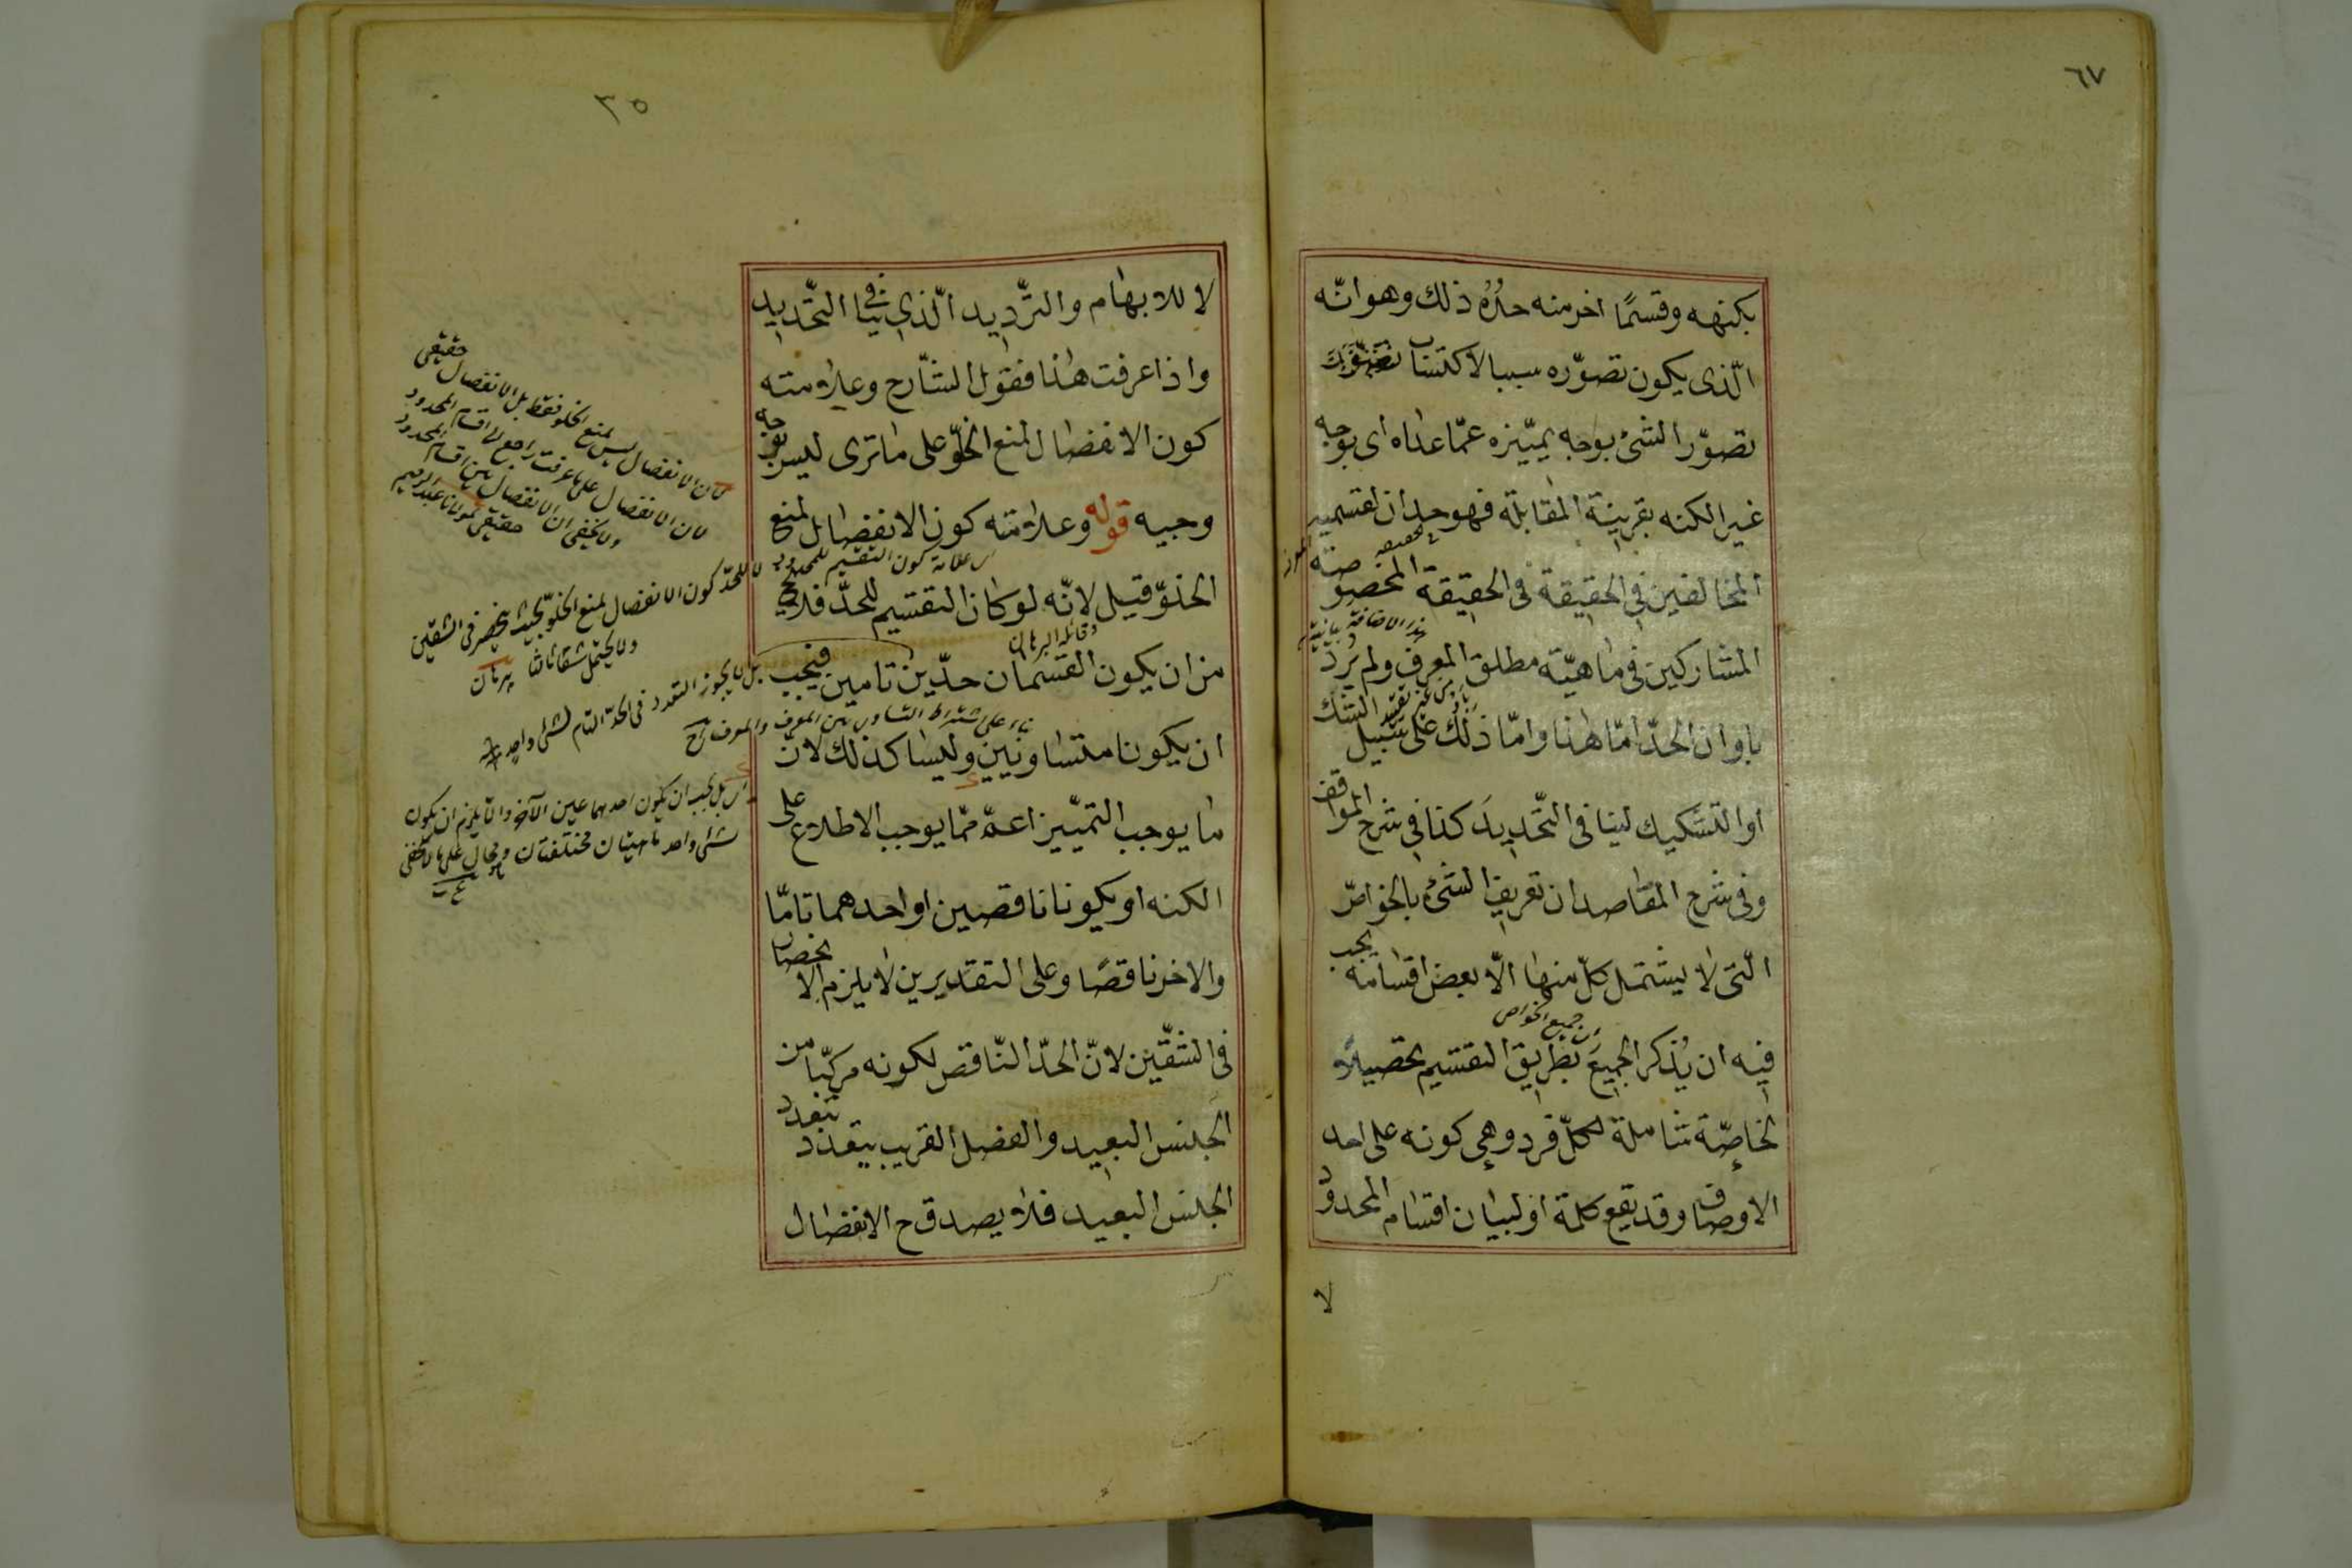 ٦٧
بكنهه وقسمًا اخر منه حدُّه ذلك وهو انّه
الّذى يكون تصوّره سببا لاكتساب
تصوّر الشئ بوجه يميّزه عمّا عداه اى بوجه
غير الكنه بقرينة المقابلة فهو حدان لقسميه
المخالفين فى الحقيقة فى الحقيقة المخصوصة
هذه الاضافة بيانية
المشاركين فى ماهيّة مطلق المعرف ولم يُرد
باو ان الحدّ امّا هذا وامّا ذلك على سبيل الشك
او التشكيك لينافى التّحديدَ كذا فى شرح المواقف
وفى شرح المقاصد ان تعريف الشئ بالخواصّ
الّتى لا يشتمل كلّ منها الّا بعض اقسامه يجب
اى جميع الخواص
فيه ان يُذكر الجميعَ بطريق التقسيم تحصيلاً
لخاصّة شاملة لكلّ فرد وهى كونه على احد
الاوصاف وقد يقع كلمة او لبيان اقسام المحدود
لا
٣٥
لا للابهام والتّرديد الّذى ينافى التّحديد
واذا عرفت هذا فقول الشّارح وعلامته
كون الانفصال لمنع الخلوّ على ماترى ليس بوجه
وجيه قوله وعلامته كون الانفصال لمنع
اى علامة كون التقسيم للمحدود
الخلوّ قيل لانّه لو كان التقسيم للحدّ فلا يخ
وقائله البرهان
من ان يكون القسمان حدّين تامين فيجب
بناء على اشتراط التساوى بين المعرف والمعرف شرح
ان يكونا متساويين وليسا كذلك لانّ
ما يوجب التميّيز اعمّ ممّا يوجب الاطلاع على
الكنه او يكونا ناقصين او احدهما تامّا
والاخر ناقصًا وعلى التقديرين لا يلزم الانحصار
فى الشقّين لانّ الحدّ النّاقص لكونه مركّبا من
الجنس البعيد والفصل القريب يتعدد بتعدد
الجنس البعيد فلا يصدق ح الانفصال
لان الانفصال ليس لمنع الخلو فقط بل الانفصال حقيقى
لان الانفصال على ما عرفت راجع الى اقسام المحدود
ولا يخفى ان الانفصال بين اقسام المحدود
حقيقى لمولانا عبد الرحيم
لا للحدّ كون الانفصال لمنع الخلوّ بحيث ينحصر فى الشقين
ولا يحتمل شقا ثالثا برهان
بل لا يجوز التعدد فى الحدّ التام لشئ واحد
اى بل يجب ان يكون احدهما عين الآخر والّا يلزم ان يكون
لشئ واحد ماهيتان مختلفتان وهو محال على ما لا يخفى